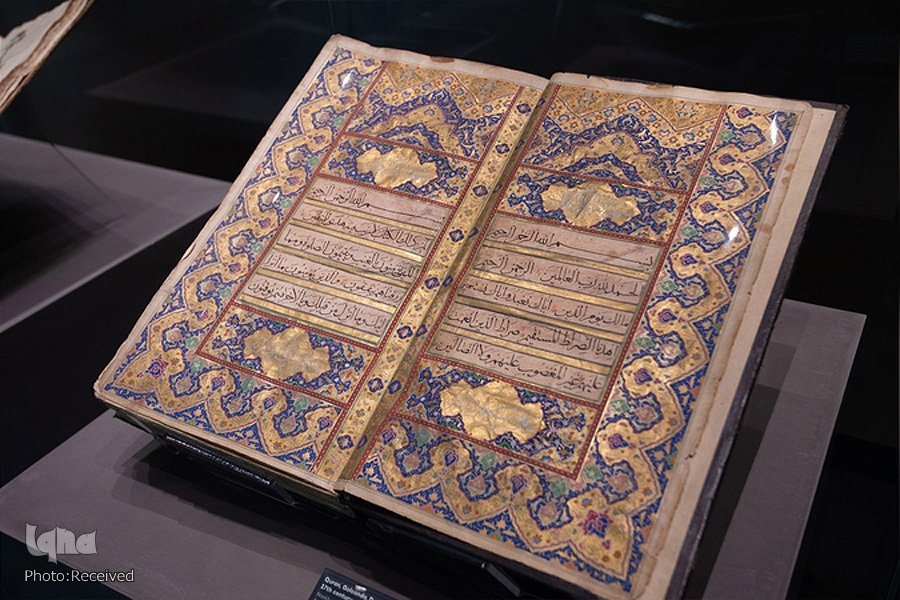 بسم الله الرحمن الرحيم
الحمد لله رب العالمين الرحمن الرحيم
مالك يوم الدين اياك نعبد واياك نستعين
اهدنا الصراط المستقيم صراط الذين انعمت
عليهم غير المغضوب عليهم ولا الضالين
بسم الله الرحمن الرحيم
الم ذلك الكتاب لا ريب فيه هدى للمتقين
الذين يؤمنون بالغيب ويقيمون الصلوة ومما
رزقناهم ينفقون والذين يؤمنون بما انزل
اليك وما انزل من قبلك وبالاخرة هم يوقنون
Iqna
Photo:Received
Quran, Golconda,
17th century